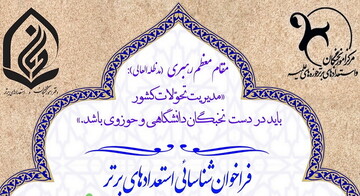 مقام معظم رهبری (مدظله‌العالی):
«مدیریت تحولات کشور
باید در دست نخبگان دانشگاهی و حوزوی باشد.»
فراخوان شناسائی استعدادهای برتر
مرکز امور نخبگان
و استعدادهای برتر حوزه‌های علمیه